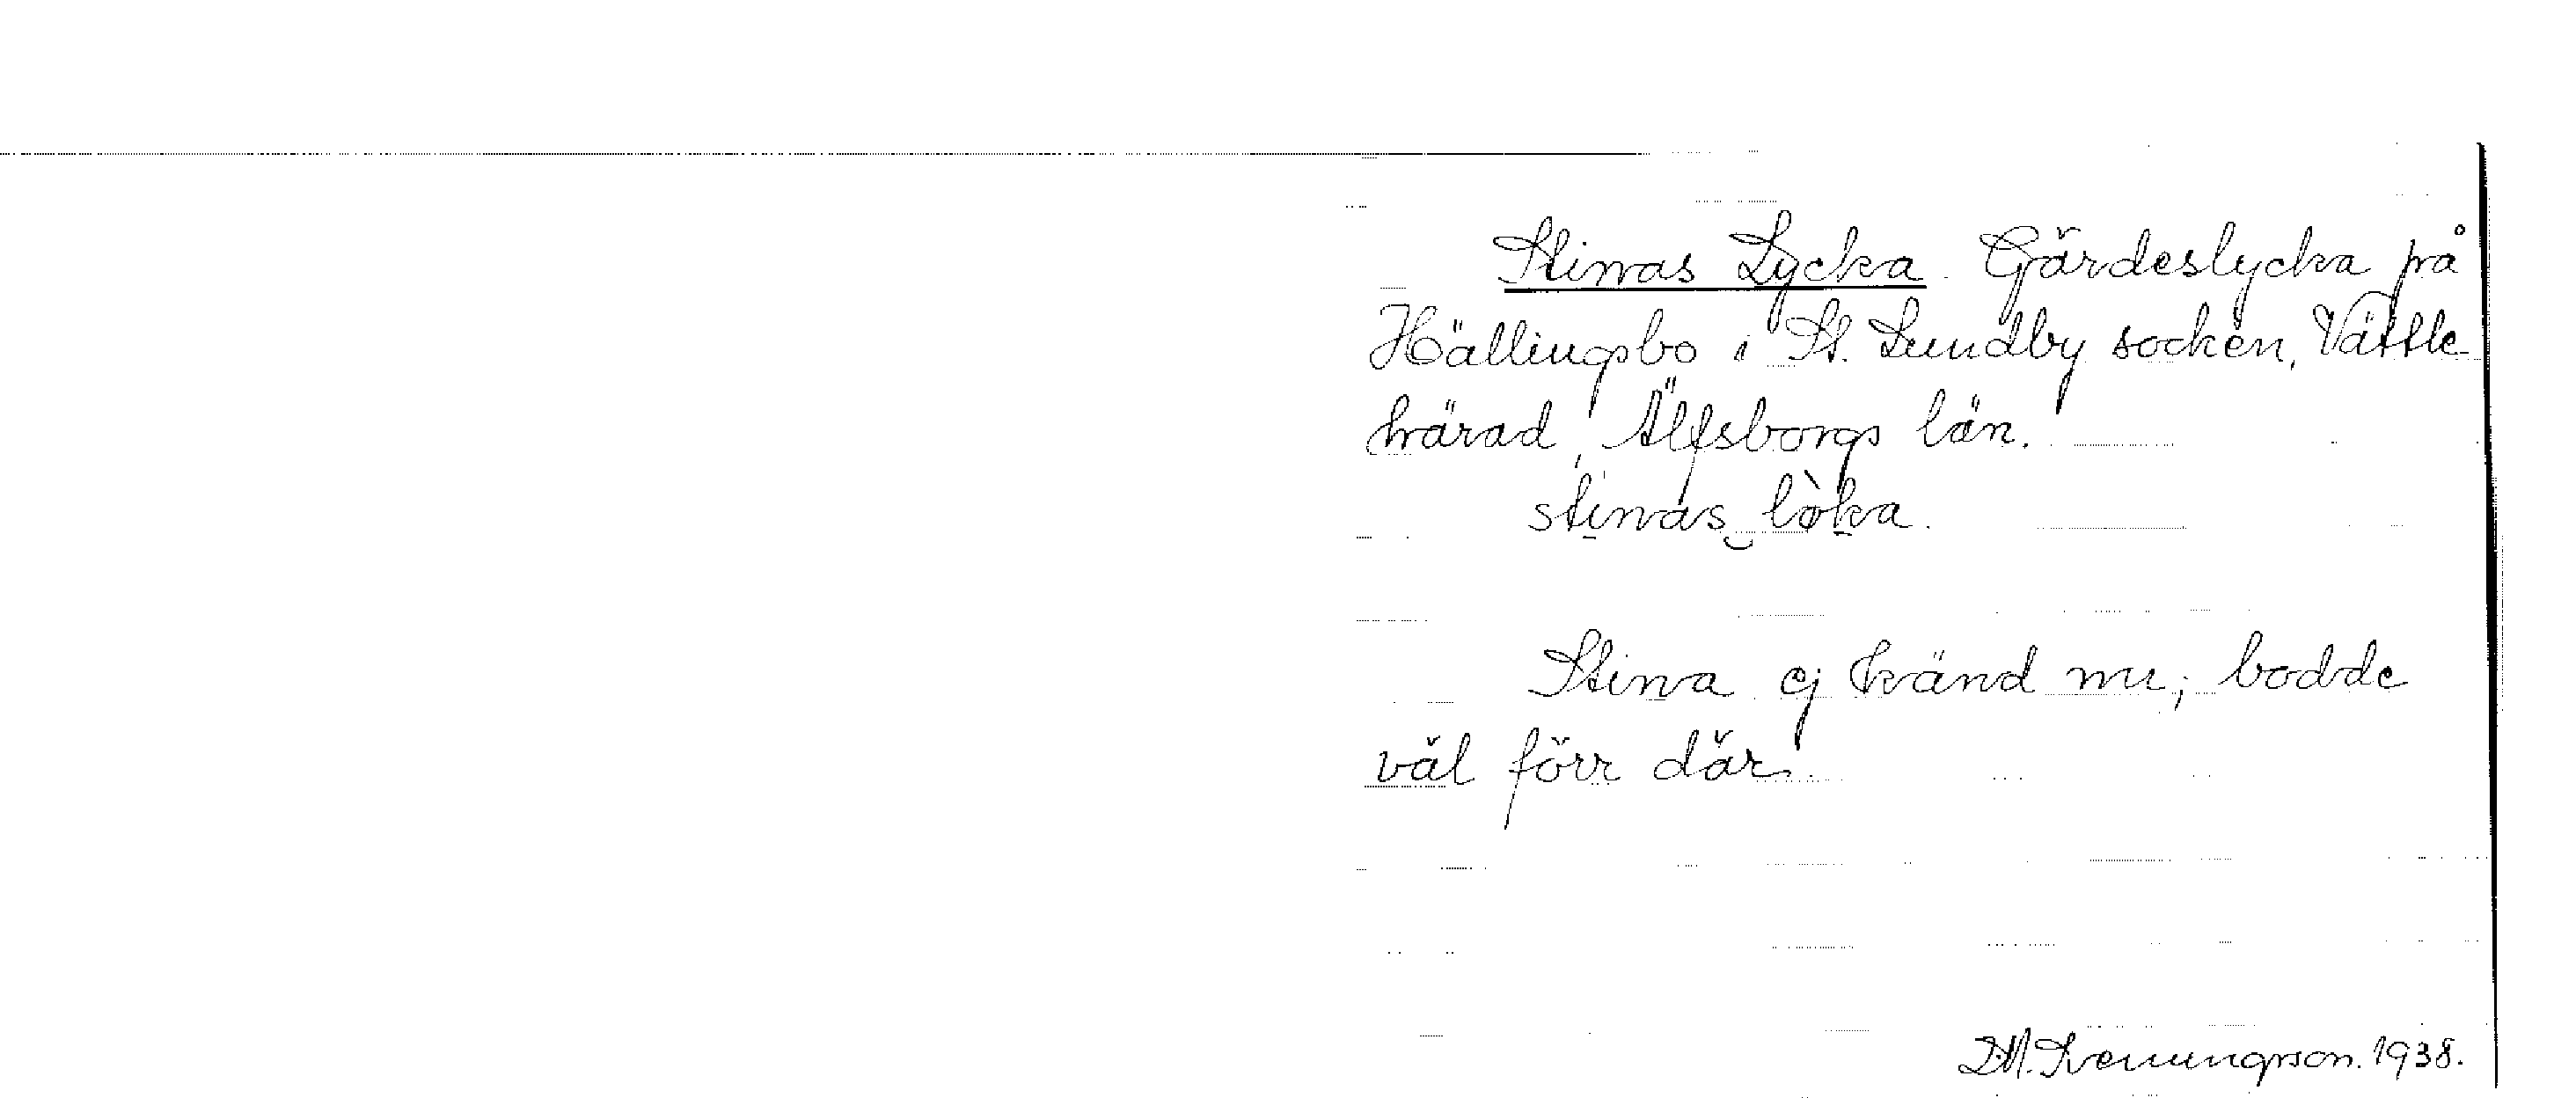 Stinas Lycka. Gärdeslycka på
Hällingsbo i St. Lundby socken, Vättle
härad, Älfsborgs län.
stinas lòka.
Stina ej känd nu; bodde
väl förr där.
1938.